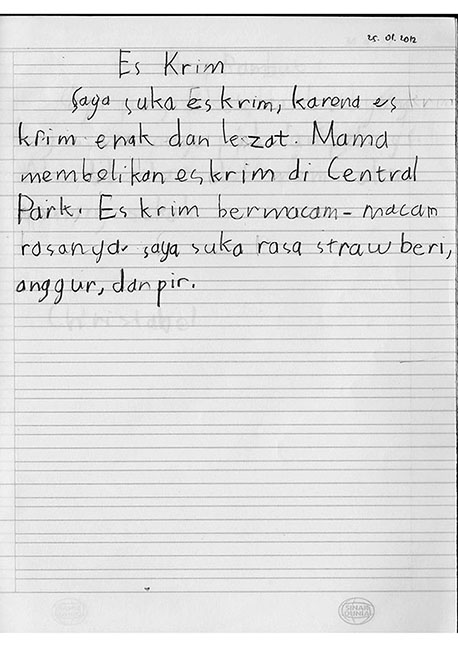 25.01.2012
Es Krim
Saya suka es krim, karena es
krim enak dan lezat. Mama
membelikan es krim di Central
Park. Es krim bermacam-macam
rasanya. saya suka rasa strawberi,
anggur, dan pir.
Christabel
SINAR
DUNIA